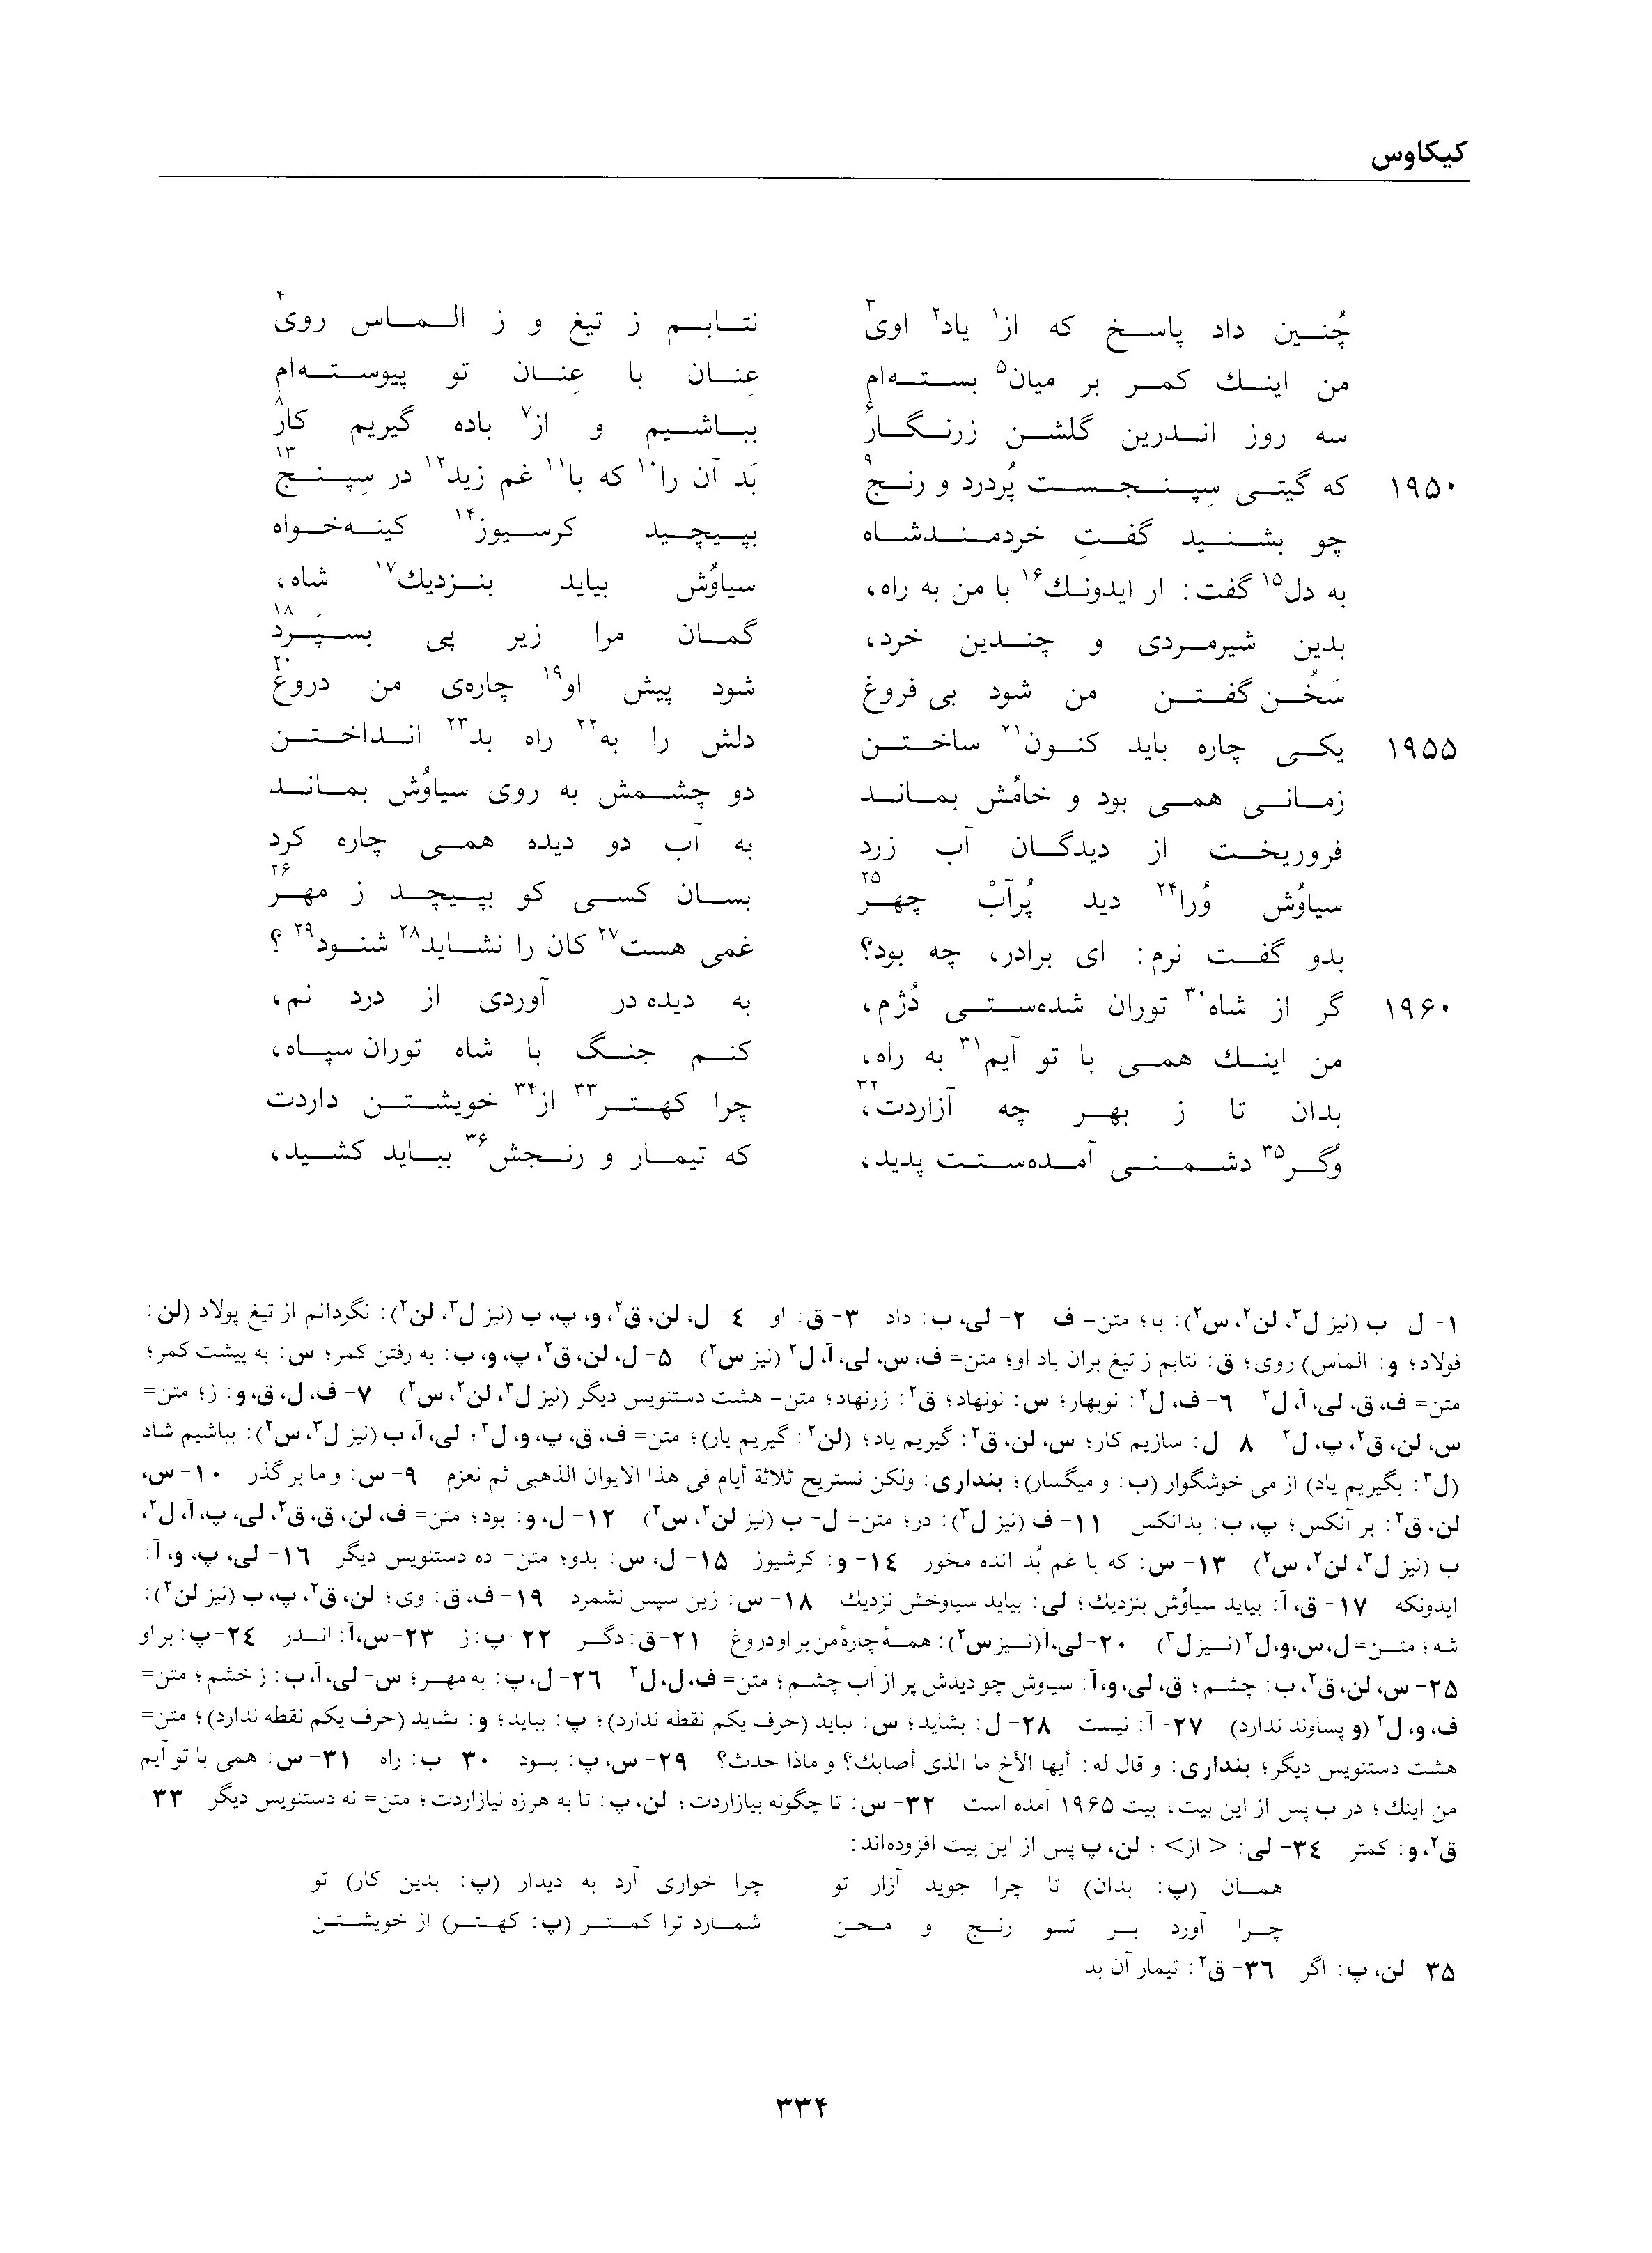 کیکاوس
چُنین داد پاسخ که از¹ یاد² اوی³ نتابم ز تیغ و ز الماس روی⁴
من اینك کمر بر میان⁵ بسته‌ام عِنان با عِنان تو پیوسته‌ام
سه روز اندرین گلشن زرنگار⁶ بباشیم و از⁷ باده گیریم کار⁸
۱۹۵۰ که گیتی سِپنجست پُردرد و رنج⁹ بَد آن را¹⁰ که با¹¹ غم زید¹² در سِپنج¹³
چو بشنید گفتِ خردمندشاه بپیچید کرسیوز¹⁴ کینه‌خواه
به دل¹⁵ گفت: ار ایدونك¹⁶ با من به راه، سیاوُش بیاید بنزدیك¹⁷ شاه،
بدین شیرمردی و چندین خرد، گمان مرا زیر پی بسپَرد¹⁸
سَخُن گفتن من شود بی فروغ شود پیش او¹⁹ چاره‌ی من دروغ²⁰
۱۹۵۵ یکی چاره باید کنون²¹ ساختن دلش را به²² راه بد²³ انداختن
زمانی همی بود و خامُش بماند دو چشمش به روی سیاوُش بماند
فروریخت از دیدگان آب زرد به آب دو دیده همی چاره کرد
سیاوُش وُرا²⁴ دید پُرآبْ چهر²⁵ بسان کسی کو بپیچد ز مهر²⁶
بدو گفت نرم: ای برادر، چه بود؟ غمی هست²⁷ کان را نشاید²⁸ شنود²⁹؟
۱۹۶۰ گر از شاه³⁰ توران شده‌ستی دُژم، به دیده در آوردی از درد نم،
من اینك همی با تو آیم³¹ به راه، کنم جنگ با شاه توران سپاه،
بدان تا ز بهر چه آزاردت،³² چرا کهتر³³ از³⁴ خویشتن داردت
وُگر³⁵ دشمنی آمده‌ستت پدید، که تیمار و رنجش³⁶ بباید کشید،
۱- ل- ب (نیز ل³، لن²، س²): با؛ متن= ف ۲- لی، ب: داد ۳- ق: او ٤- ل، لن، ق²، و، پ، ب (نیز ل³، لن²): نگردانم از تیغ پولاد (لن:
فولاد؛ و: الماس) روی؛ ق: نتابم ز تیغ بران باد او؛ متن= ف، س، لی، آ، ل² (نیز س²) ۵- ل، لن، ق²، پ، و، ب: به رفتن کمر؛ س: به پیشت کمر؛
متن= ف، ق، لی، آ، ل² ٦- ف، ل²: نوبهار؛ س: نونهاد؛ ق²: زرنهاد؛ متن= هشت دستنویس دیگر (نیز ل³، لن²، س²) ۷- ف، ل، ق، و: ز؛ متن=
س، لن، ق²، پ، ل² ۸- ل: سازیم کار؛ س، لن، ق²: گیریم یاد؛ (لن²: گیریم یار)؛ متن= ف، ق، پ، و، ل²؛ لی، آ، ب (نیز ل³، س²): بباشیم شاد
(ل³: بگیریم یاد) از می خوشگوار (ب: و میگسار)؛ بنداری: ولکن نستریح ثلاثة أیام فی هذا الایوان الذهبی ثم نعزم ۹- س: و ما بر گذر ۱۰- س،
لن، ق²: بر آنکس؛ پ، ب: بدانکس ۱۱- ف (نیز ل³): در؛ متن= ل- ب (نیز لن²، س²) ۱۲- ل، و: بود؛ متن= ف، لن، ق، ق²، لی، پ، آ، ل²،
ب (نیز ل³، لن²، س²) ۱۳- س: که با غم بُد انده مخور ۱٤- و: کرشیوز ۱۵- ل، س: بدو؛ متن= ده دستنویس دیگر ۱٦- لی، پ، و، آ:
ایدونکه ۱۷- ق، آ: بیاید سیاوُش بنزدیك؛ لی: بیاید سیاوخش نزدیك ۱۸- س: زین سپس نشمرد ۱۹- ف، ق: وی؛ لن، ق²، پ، ب (نیز لن²):
شه؛ متن= ل، س، و، ل² (نیز ل³) ۲۰- لی، آ (نیز س²): همهٔ چارهٔ من بر او دروغ ۲۱- ق: دگر ۲۲- پ: ز ۲۳- س، آ: اندر ۲٤- پ: بر او
۲۵- س، لن، ق²، ب: چشم؛ ق، لی، و، آ: سیاوش چو دیدش پر از آب چشم؛ متن= ف، ل، ل² ۲٦- ل، پ: به مهر؛ س- لی، آ، ب: ز خشم؛ متن=
ف، و، ل² (و پساوند ندارد) ۲۷- آ: نیست ۲۸- ل: بشاید؛ س: ىباید (حرف یکم نقطه ندارد)؛ پ: بباید؛ و: ىشاید (حرف یکم نقطه ندارد)؛ متن=
هشت دستنویس دیگر؛ بنداری: و قال له: أیها الأخ ما الذی أصابك؟ و ماذا حدث؟ ۲۹- س، پ: بسود ۳۰- ب: راه ۳۱- س: همی با تو آیم
من اینك؛ در ب پس از این بیت، بیت ۱۹۶۵ آمده است ۳۲- س: تا چگونه بیازاردت؛ لن، پ: تا به هرزه نیازاردت؛ متن= نه دستنویس دیگر ۳۳-
ق²، و: کمتر ۳٤- لی: <از>؛ لن، پ پس از این بیت افزوده‌اند:
همان (پ: بدان) تا چرا جوید آزار تو چرا خواری آرد به دیدار (پ: بدین کار) تو
چرا آورد بر تسو رنج و محن شمارد ترا کمتر (پ: کهتر) از خویشتن
۳۵- لن، پ: اگر ۳٦- ق²: تیمار آن بد
۳۳۴